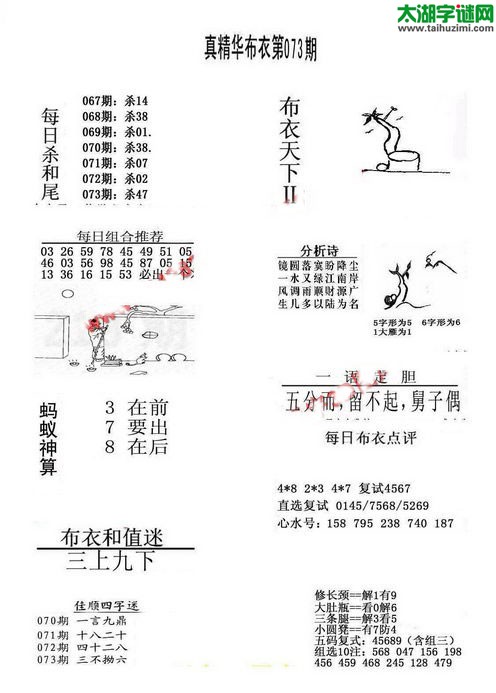 太湖字谜网
www.taihuzimi.com
真精华布衣第073期
每日杀和尾
067期: 杀14
068期: 杀38
069期: 杀01.
070期: 杀38.
071期: 杀07
072期: 杀02
073期: 杀47
布衣天下II
每日组合推荐
03 26 59 78 45 49 51 05
46 03 56 98 45 87 05 15
13 36 16 15 53 必出 个
分析诗
镜圆落寞盼降尘
一水又绿江南岸
风调雨顺财源广
生儿多以陆为名
5字形为5 6字形为6
1大雁为1
一语定胆
五分而,留不起,舅子偶
蚂蚁神算
3 在前
7 要出
8 在后
每日布衣点评
4*8 2*3 4*7 复试4567
直选复试 0145/7568/5269
心水号: 158 795 238 740 187
布衣和值迷
三上九下
佳顺四字迷
070期 一言九鼎
071期 十八二十
072期 四十二八
073期 三不拗六
修长颈==解1有9
大肚瓶==看0解6
三条腿==解3看6
小圆凳==有7防4
五码复式: 45689 (含组三)
组选10注: 568 047 156 198
456 459 468 245 128 479